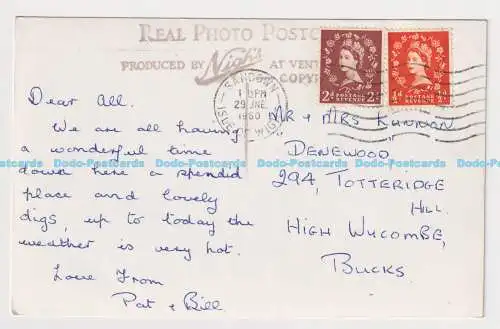 REAL PHOTO POSTC
PRODUCED BY Nigh's AT VENT
COPY
SANDOWN
1 PM
29 JNE
1960
ISLE OF WIGHT
2d POSTAGE REVENUE 2d
½d POSTAGE REVENUE
Dear All.
We are all having
a wonderful time
down here a splendid
place and lovely
digs, up to today the
weather is very hot.
Love From
Pat & Bill.
MR & MRS
DENEWOOD
294, TOTTERIDGE
HILL.
HIGH WYCOMBE,
BUCKS
Dodo-Postcards Dodo-Postcards Dodo-Postcards Dodo-Postcards Dodo-Postcards